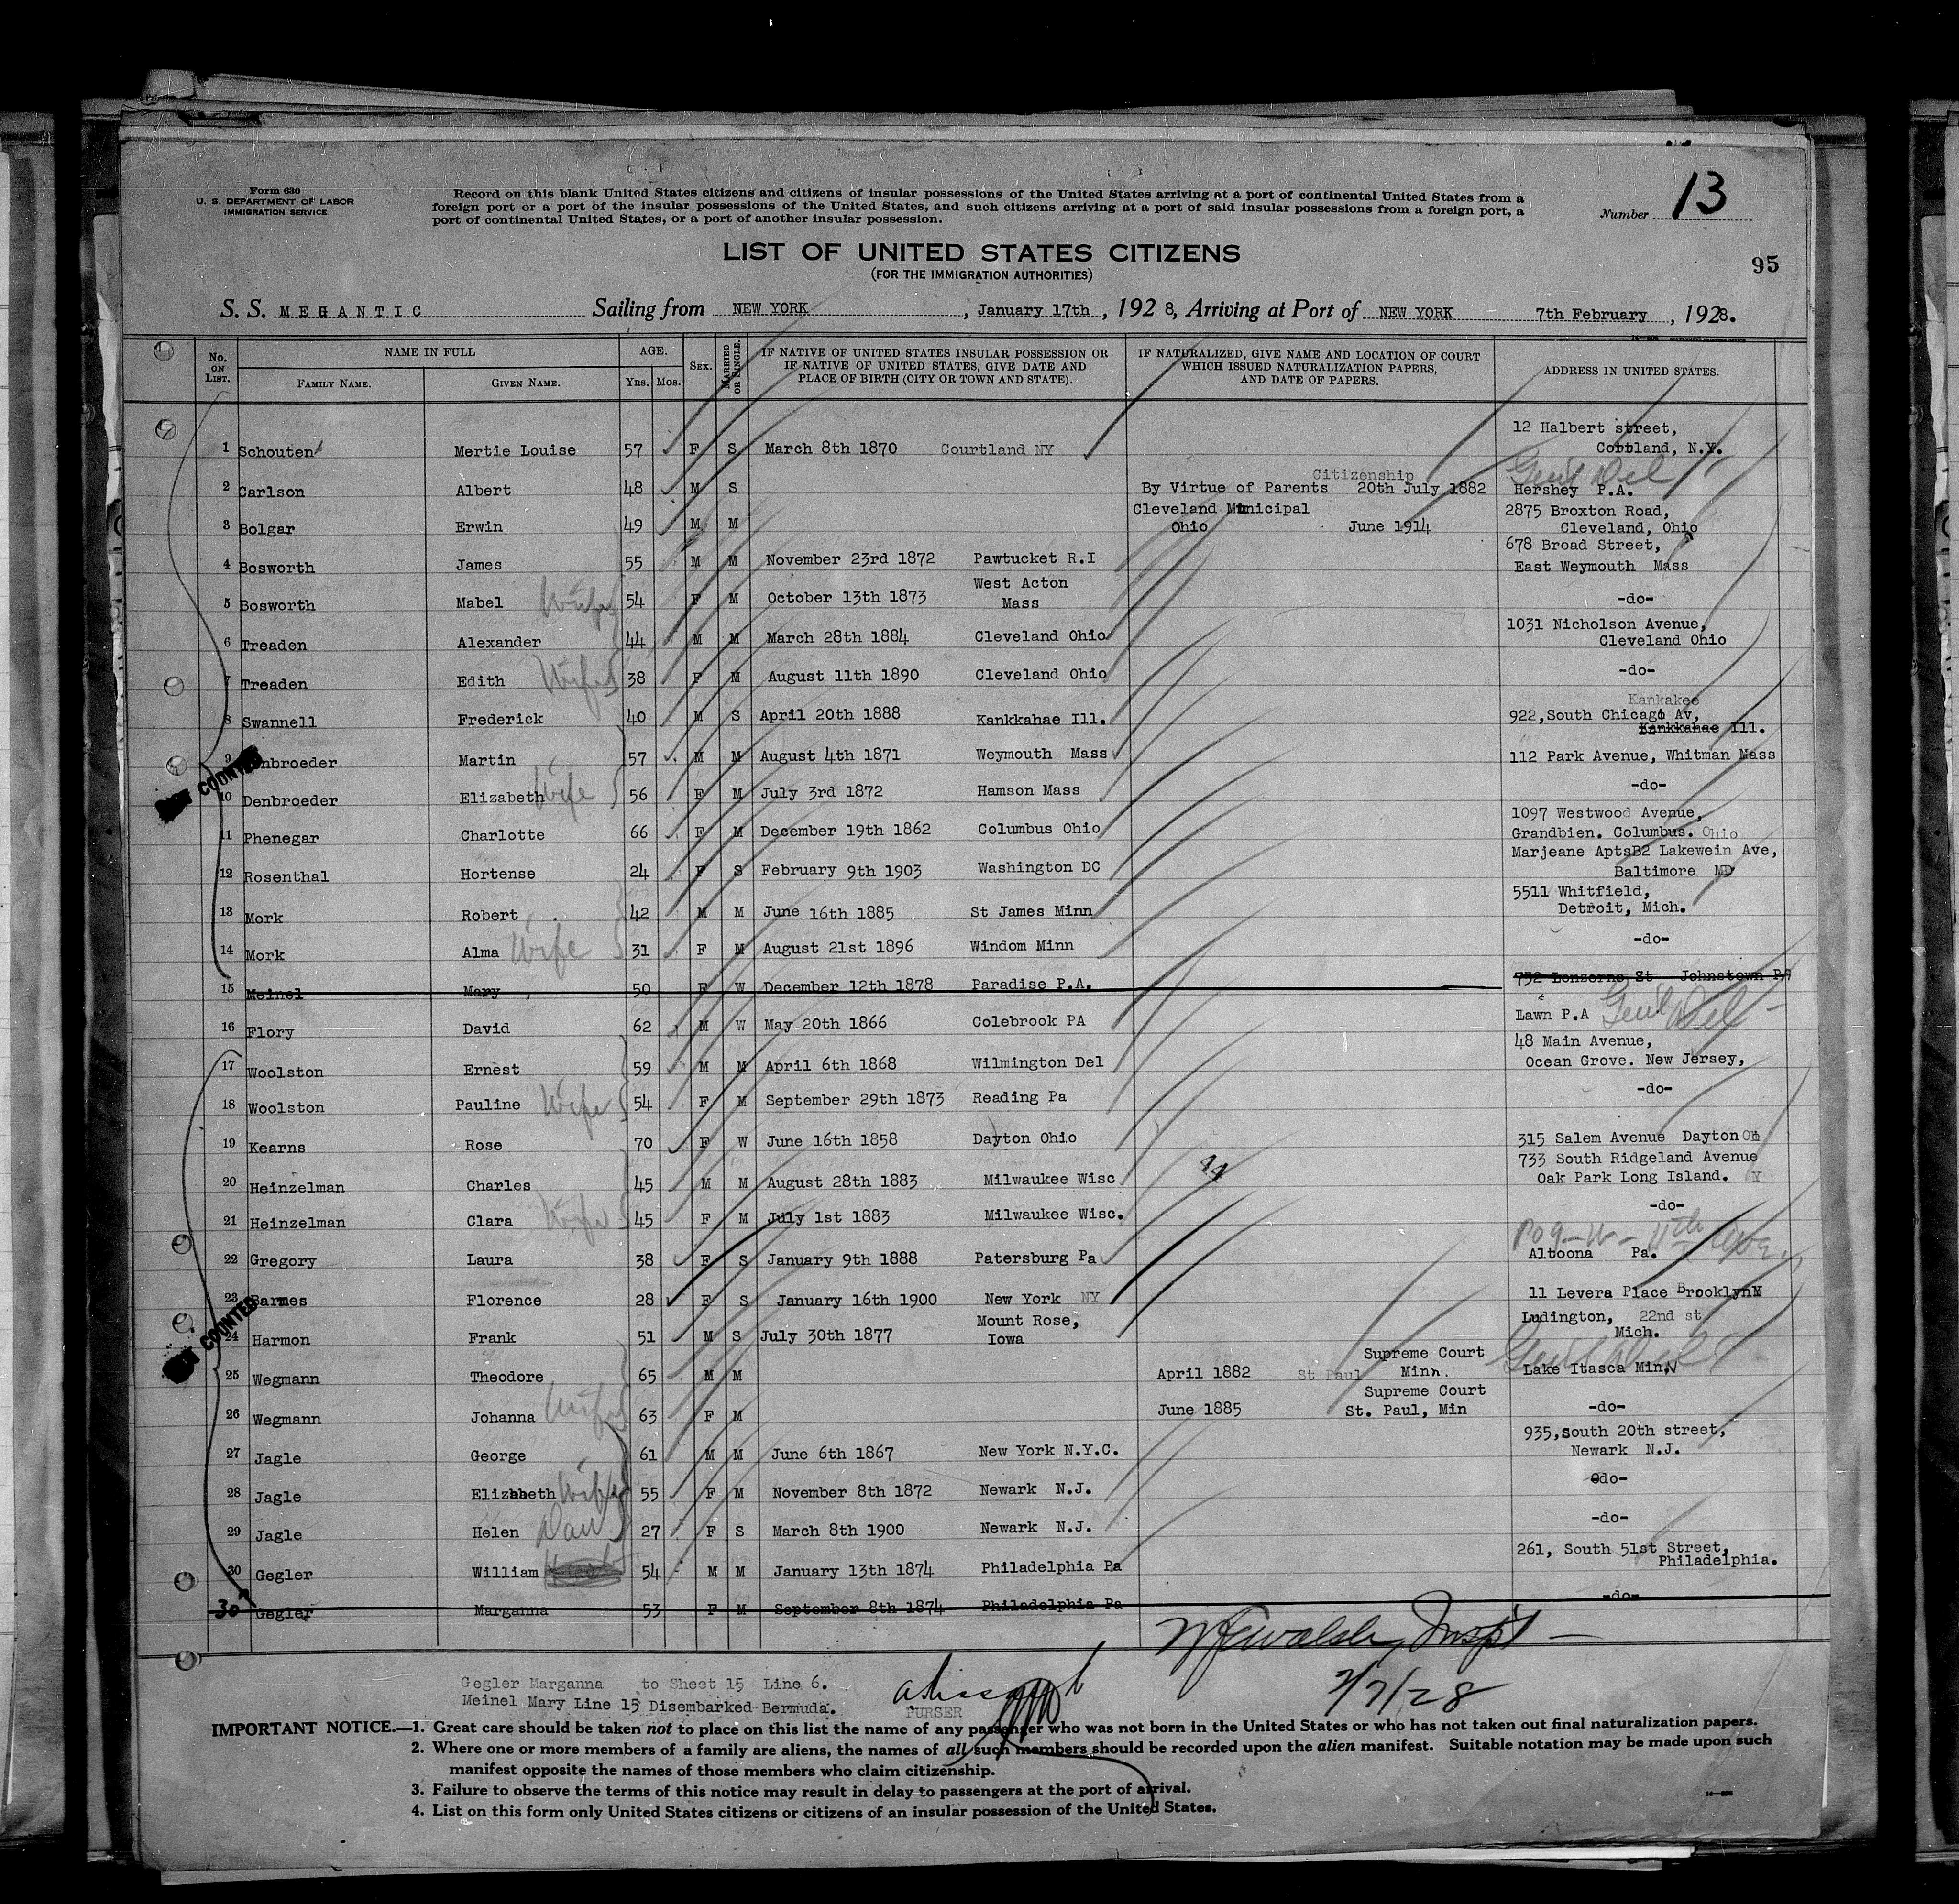 Form 630
U. S. DEPARTMENT OF LABOR
IMMIGRATION SERVICE
Record on this blank United States citizens and citizens of insular possessions of the United States arriving at a port of continental United States from a
foreign port or a port of the insular possessions of the United States, and such citizens arriving at a port of said insular possessions from a foreign port, a
port of continental United States, or a port of another insular possession.
Number 13
LIST OF UNITED STATES CITIZENS
(FOR THE IMMIGRATION AUTHORITIES)
95
S. S. MEGANTIC Sailing from NEW YORK , January 17th , 192 8, Arriving at Port of NEW YORK 7th February , 1928.
No. ON LIST. NAME IN FULL AGE. SEX. MARRIED OR SINGLE. IF NATIVE OF UNITED STATES INSULAR POSSESSION OR IF NATIVE OF UNITED STATES, GIVE DATE AND PLACE OF BIRTH (CITY OR TOWN AND STATE). IF NATURALIZED, GIVE NAME AND LOCATION OF COURT WHICH ISSUED NATURALIZATION PAPERS, AND DATE OF PAPERS. ADDRESS IN UNITED STATES.
FAMILY NAME. GIVEN NAME. YRS. MOS.
12 Halbert street,
1 Schouten Mertie Louise 57 F S March 8th 1870 Courtland NY Cortland, N.Y.
Citizenship Gen'l Del
2 Carlson Albert 48 M S By Virtue of Parents 20th July 1882 Hershey P.A.
Cleveland Municipal 2875 Broxton Road,
3 Bolgar Erwin 49 M M Ohio June 1914 Cleveland, Ohio
678 Broad Street,
4 Bosworth James 55 M M November 23rd 1872 Pawtucket R.I East Weymouth Mass
West Acton
5 Bosworth Mabel Wife 54 F M October 13th 1873 Mass -do-
1031 Nicholson Avenue,
6 Treaden Alexander 44 M M March 28th 1884 Cleveland Ohio Cleveland Ohio
7 Treaden Edith Wife 38 F M August 11th 1890 Cleveland Ohio -do-
Kankakee
8 Swannell Frederick 40 M S April 20th 1888 Kankkahae Ill. 922,South Chicago Av,
Kankkahae Ill.
9 Denbroeder Martin 57 M M August 4th 1871 Weymouth Mass 112 Park Avenue, Whitman Mass
NOT COUNTED
10 Denbroeder Elizabeth Wife 56 F M July 3rd 1872 Hamson Mass -do-
1097 Westwood Avenue,
11 Phenegar Charlotte 66 F M December 19th 1862 Columbus Ohio Grandbien. Columbus. Ohio
Marjeane AptsB2 Lakewein Ave,
12 Rosenthal Hortense 24 F S February 9th 1903 Washington DC Baltimore MD
5511 Whitfield,
13 Mork Robert 42 M M June 16th 1885 St James Minn Detroit, Mich.
14 Mork Alma Wife 31 F M August 21st 1896 Windom Minn -do-
15 Meinel Mary 50 F W December 12th 1878 Paradise P.A. 732 Lonzerns St Johnstown PA
16 Flory David 62 M W May 20th 1866 Colebrook PA Lawn P.A Gen'l Del
48 Main Avenue,
17 Woolston Ernest 59 M M April 6th 1868 Wilmington Del Ocean Grove. New Jersey,
18 Woolston Pauline Wife 54 F M September 29th 1873 Reading Pa -do-
19 Kearns Rose 70 F W June 16th 1858 Dayton Ohio 315 Salem Avenue Dayton Oh
733 South Ridgeland Avenue
20 Heinzelman Charles 45 M M August 28th 1883 Milwaukee Wisc Oak Park Long Island. Y
21 Heinzelman Clara Wife 45 F M July 1st 1883 Milwaukee Wisc. -do-
22 Gregory Laura 38 F S January 9th 1888 Patersburg Pa Altoona Pa.
23 Barnes Florence 28 F S January 16th 1900 New York NY 11 Levera Place BrooklynN
NOT COUNTED
Mount Rose, Ludington, 22nd st
24 Harmon Frank 51 M S July 30th 1877 Iowa Mich.
Supreme Court Gen'l Del
25 Wegmann Theodore 65 M M April 1882 St Paul Minn. Lake Itasca MinN
Supreme Court
26 Wegmann Johanna Wife 63 F M June 1885 St. Paul, Min -do-
935,south 20th street,
27 Jagle George 61 M M June 6th 1867 New York N.Y.C. Newark N.J.
28 Jagle Elizabeth Wife 55 F M November 8th 1872 Newark N.J. -do-
29 Jagle Helen Dau 27 F S March 8th 1900 Newark N.J. -do-
261, South 51st Street,
30 Gegler William 54 M M January 13th 1874 Philadelphia Pa Philadelphia.
30 Gegler Marganna 53 F M September 8th 1874 Philadelphia Pa -do-
Walsh Inspt
Gegler Marganna to Sheet 15 Line 6. 2/7/28
Meinel Mary Line 15 Disembarked Bermuda. PURSER
IMPORTANT NOTICE.—1. Great care should be taken not to place on this list the name of any passenger who was not born in the United States or who has not taken out final naturalization papers.
2. Where one or more members of a family are aliens, the names of all such members should be recorded upon the alien manifest. Suitable notation may be made upon such
manifest opposite the names of those members who claim citizenship.
3. Failure to observe the terms of this notice may result in delay to passengers at the port of arrival.
4. List on this form only United States citizens or citizens of an insular possession of the United States.